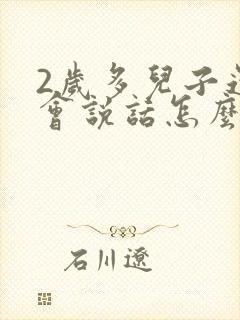 2歲多兒子
會說話怎麼
石川遼